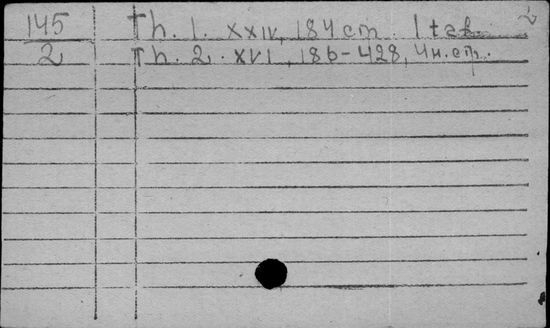 145 Th. 1. XXIV, 184 cm. 1 tab. 2
2 Th. 2. XVI, 186-428, 4 н. ст.